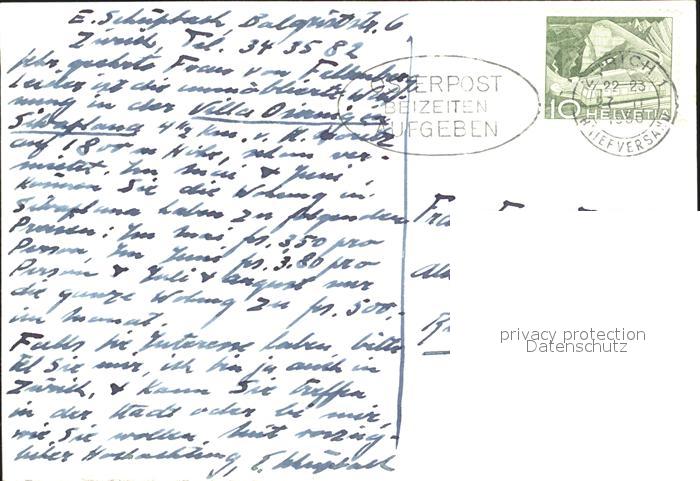 E. Schüpbach Balgriststr. 6
Zürich, Tel. 34 35 82
sehr geehrte Frau von Fellenberg
Leider ist die immöblierte Woh
nung in der Villa
Silvaplana 4½ km. v. St. Moritz
auf 1800 m Höhe, schon ver-
mietet. Im Mai & Juni
können Sie die Wohnung in
Silvaplana haben zu folgenden
Preisen: Im Mai frs. 3,50 pro
Person, Im Juni frs. 3.80 pro
Person & Juli & August nur
die ganze Wohnung zu frs. 500.-
im Monat.
Falls Sie Interesse haben, bitte
tel Sie mir, ich bin ja auch in
Zürich, & kann Sie treffen
in der Stadt oder bei mir,
wie Sie wollen, Mit vorzüg-
licher Hochachtung, E. Schüpbach
OSTERPOST
BEIZEITEN
AUFGEBEN
ZÜRICH 1
22-23
BRIEFVERSAND
10 HELVETIA
privacy protection
Datenschutz